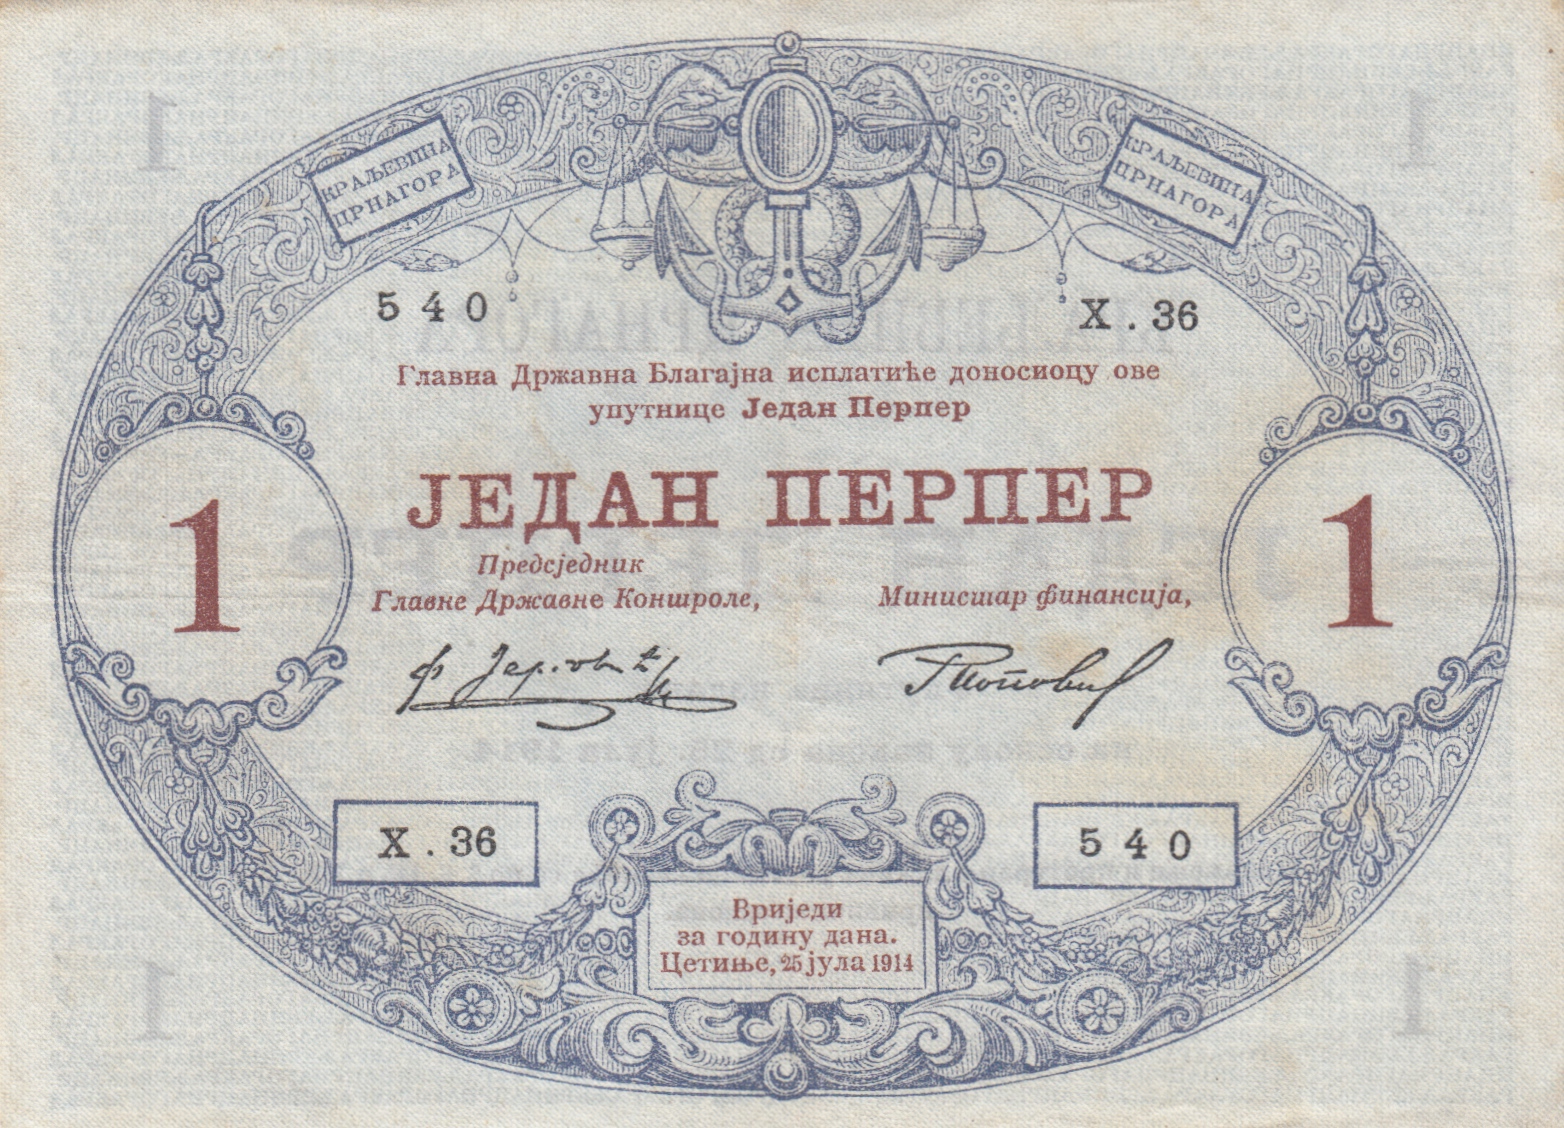 КРАЉЕВИНА
ЦРНАГОРА
КРАЉЕВИНА
ЦРНАГОРА
540
X.36
Главна Државна Благајна исплатиће доносиоцу ове
упутнице Један Перпер
ЈЕДАН ПЕРПЕР
1
1
Предсједник
Главне Државне Контроле,
Министар финансија,
X.36
540
Вриједи
за годину дана.
Цетиње, 25 јула 1914